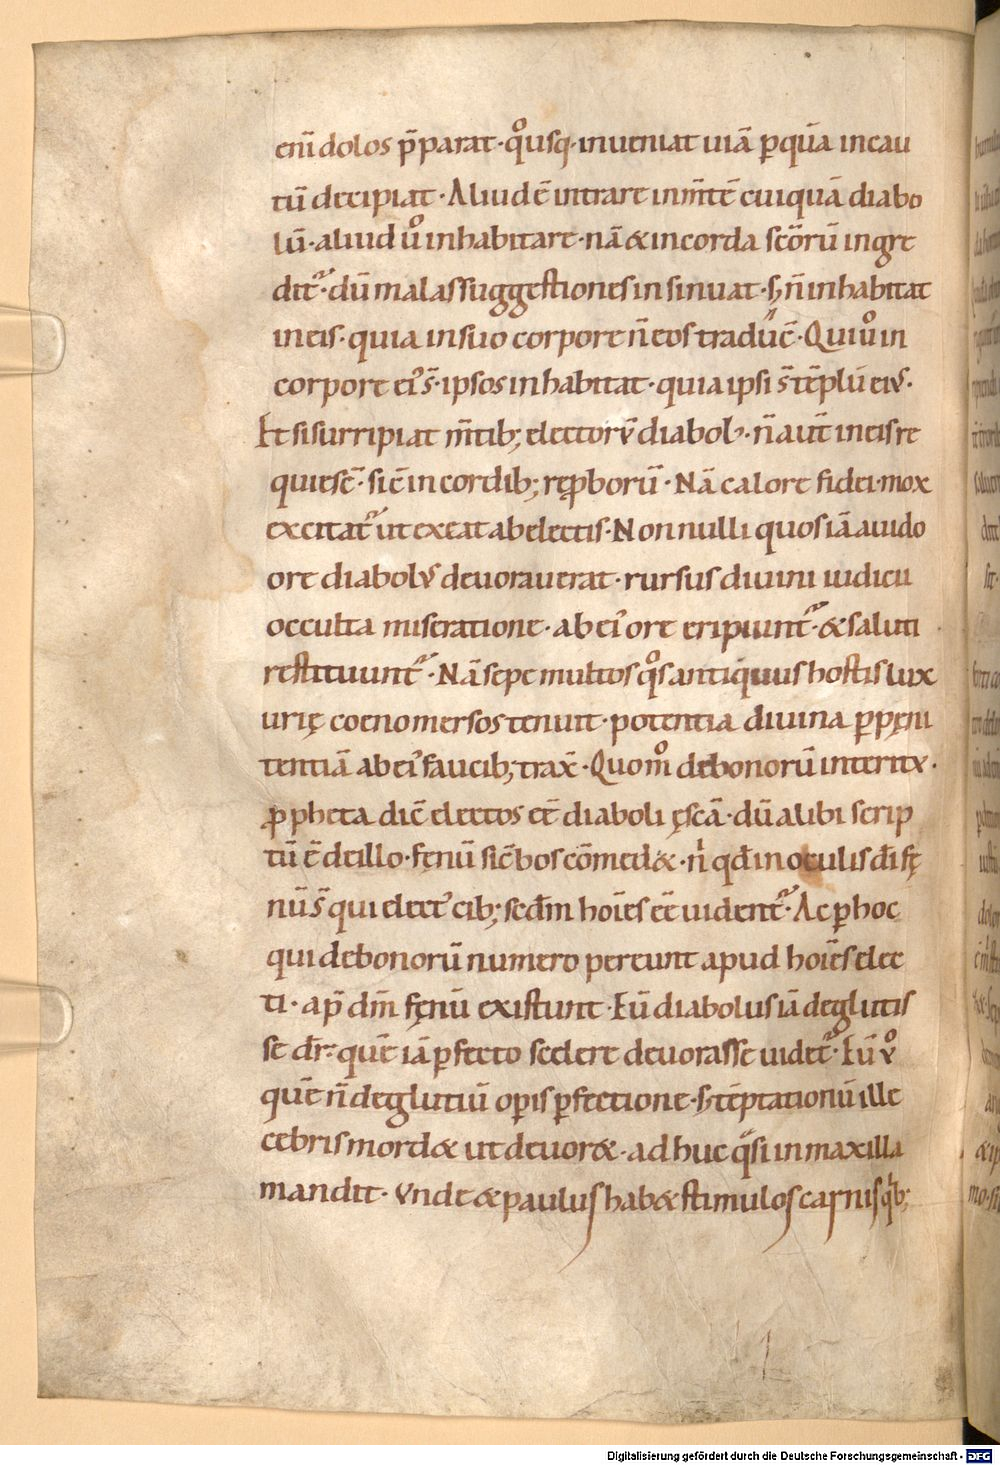 enī dolos p̄parat · qͦusq; inueniat uiā ꝑ quā incau
tū decipiat · Aliud ē intrare in m̄tē cuiquā diabo
lū · aliud uͦ inhabitare · nā & in corda sc̄orū ingre
dit᷑ · dū malas suggestiones insinuat · s; n̄ inhabitat
in eis · quia in suo corpore n̄ eos traduc̄ · Qui uͦ in
corpore ei᾽ s̄ · ipsos inhabitat · quia ipsi s̄ tēplū eiꝰ ·
Et si surripiat m̄tib; electorū diabolꝰ · n̄ aut̄ in eis re
quiesc̄ · sic̄ in cordib; reꝓborū · Nā calore fidei mox
excitat᷑ ut exeat ab electis · Nonnulli quos iā auido
ore diabolꝰ deuorauerat · rursus diuini iudicii
occulta miseratione · ab ei᾽ ore eripiunt᷑ · & saluti
restituunt᷑ · Nā sepe multos qͦs antiquus hostis lux
urię coeno mersos tenuit · potentia diuina ꝑ pęni
tentiā ab ei᾽ faucib; trax̄ · Quom̊ de bonorū interitꝰ ·
ꝓpheta dic̄ electos ēē diaboli ęscā · dū alibi scrip
tū ē de illo · fęnū sic̄ bos cōmed& · n̄ qđ in oculis dī fę
nū s̄ qui elect᾽ cib; secđm hoīes ēē uident᷑ · Ac ꝑ hoc
qui de bonorū numero pereunt apud hoīes elec
ti · ap̄ dm̄ fęnū existunt · Eū diabolus iā deglutis
se dr̄ · quē iā ꝑfecto scelere deuorasse uidet᷑ · Eū uͦ
quē n̄ deglutiū operis ꝑfectione · s; tēptationū ille
cebris mord& ut deuor& · ad huc qͣsi in maxilla
mandit · Vnde & paulus hab& stimulos carnis qͥb;
Digitalisierung gefördert durch die Deutsche Forschungsgemeinschaft - DFG